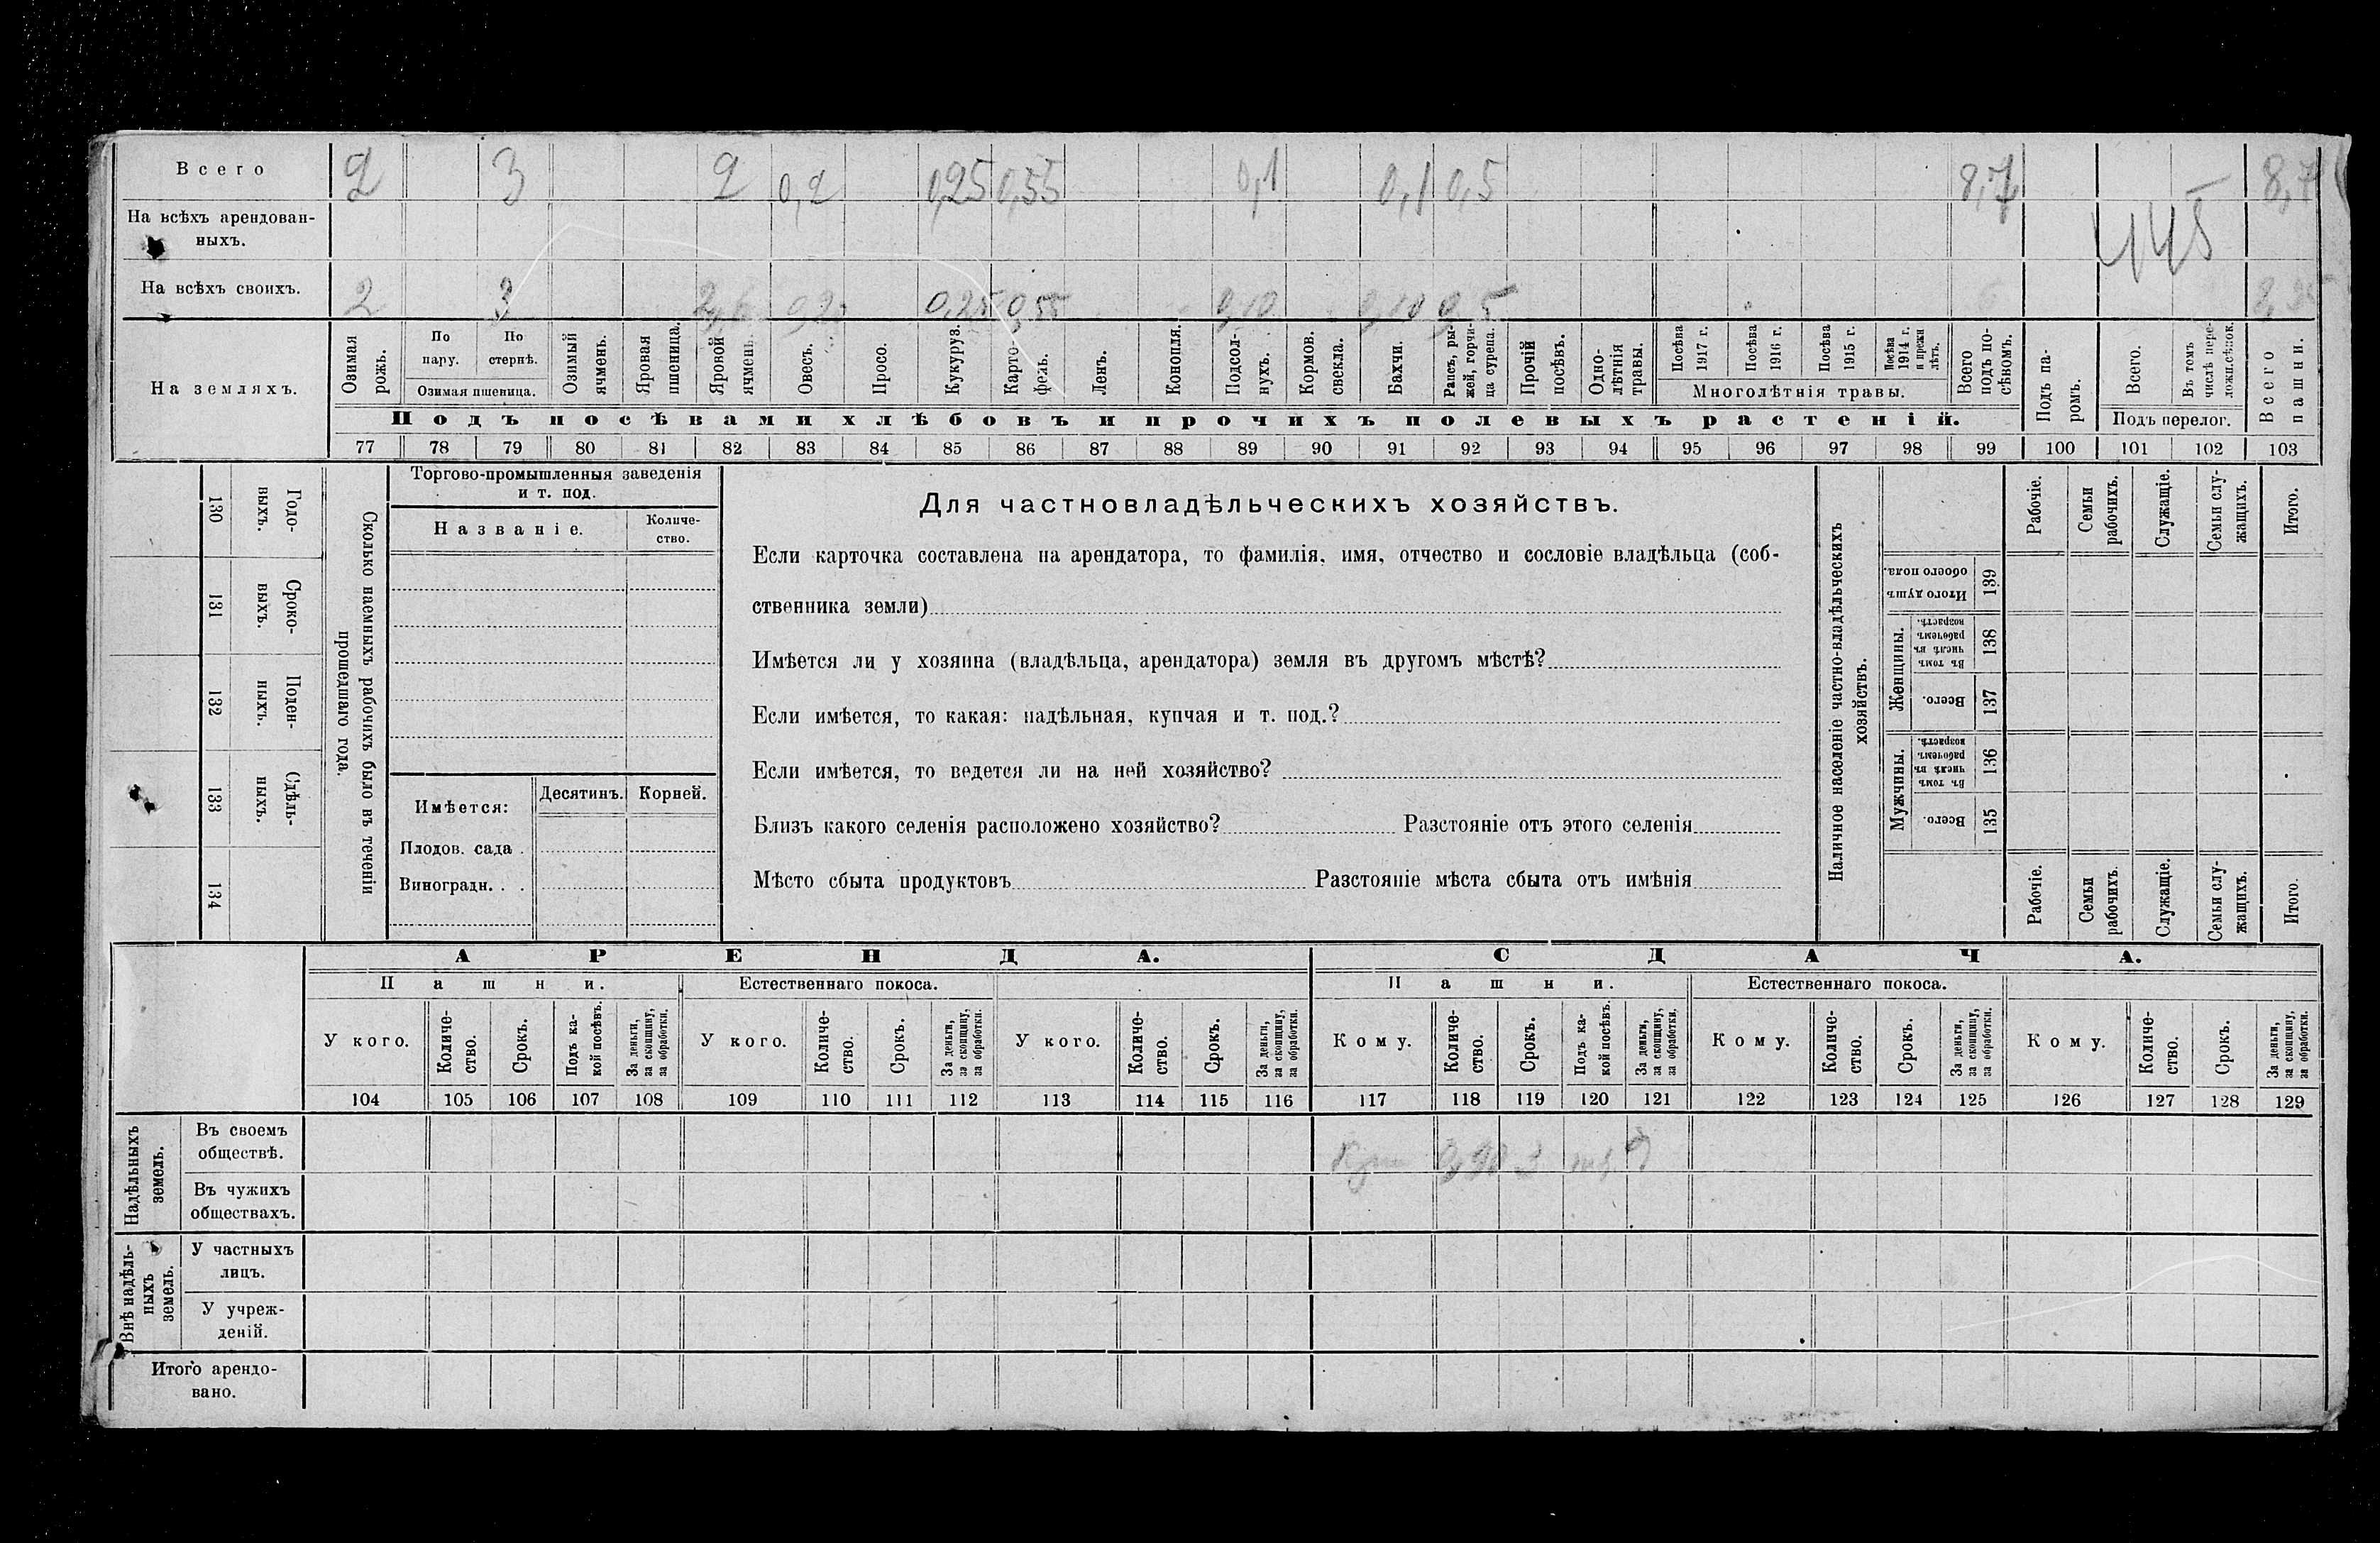 Всего 2 3 2 0,2 0,25 0,55 0,1 0,1 0,5 8,7 8,7
На всѣхъ арендован-
ныхъ.
445
На всѣхъ своихъ. 2 3 0,2 0,25 0,55 0,10 0,10 0,5
На земляхъ.
Озимая рожь.
По пару.
По стернѣ.
Озимая пшеница.
Озимый ячмень.
Яровая пшеница.
Яровой ячмень.
Овесъ.
Просо.
Кукуруз.
Карто-
фель.
Ленъ.
Конопля.
Подсол-
нухъ.
Кормов. свекла.
Бахчи.
Рапсъ, ры-
жей, горчи-
ца сурепа.
Прочій посѣвъ.
Одно-
лѣтнія травы.
Посѣва 1917 г.
Посѣва 1916 г.
Посѣва 1915 г.
Посѣва 1914 г. и прежн лѣтъ.
Многолѣтнія травы.
Всего подъ по-
сѣвомъ.
Подъ па-
ромъ.
Всего.
Въ томъ числѣ пере-
ложн.сѣнок.
Подъ перелог.
Всего пашни.
Подъ посѣвами хлѣбовъ и прочихъ полевыхъ растеній.
77 78 79 80 81 82 83 84 85 86 87 88 89 90 91 92 93 94 95 96 97 98 99 100 101 102 103
Годо-
выхъ.
130
Сроко-
выхъ.
131
Поден-
ныхъ.
132
Сдѣль-
ныхъ.
133
134
Сколько наемныхъ рабочихъ было въ теченіи
прошедшаго года.
Торгово-промышленныя заведенія
и т. под.
Названіе.
Количе-
ство.
Имѣется:
Десятинъ. Корней.
Плодов. сада .
Виноградн. . .
Для частновладѣльческихъ хозяйствъ.
Если карточка составлена на арендатора, то фамилія, имя, отчество и сословіе владѣльца (соб-
ственника земли)
Имѣется ли у хозяина (владѣльца, арендатора) земля въ другомъ мѣстѣ?
Если имѣется, то какая: надѣльная, купчая и т. под.?
Если имѣется, то ведется ли на ней хозяйство?
Близъ какого селенія расположено хозяйство? Разстояніе отъ этого селенія
Мѣсто сбыта продуктовъ Разстояніе мѣста сбыта отъ имѣнія
Наличное населеніе частно-владѣльческихъ
хозяйствъ.
Рабочіе.
Семьи рабочихъ.
Служащіе.
Семьи слу-
жащихъ.
Итого.
Итого душъ обоего пола.
139
Женщины.
Въ томъ числѣ въ рабочемъ возрастѣ.
138
Всего.
137
Мужчины.
Въ томъ числѣ въ рабочемъ возрастѣ.
136
Всего.
135
Рабочіе.
Семьи рабочихъ.
Служащіе.
Семьи слу-
жащихъ.
Итого.
АРЕНДА. СДАЧА.
Пашни. Естественнаго покоса. Пашни. Естественнаго покоса.
У кого.
Количе-
ство.
Срокъ.
Подъ ка-
кой посѣвъ.
За деньги, за скопщину, за обработки.
У кого.
Количе-
ство.
Срокъ.
За деньги, за скопщину, за обработки.
У кого.
Количе-
ство.
Срокъ.
За деньги, за скопщину, за обработки.
Кому.
Количе-
ство.
Срокъ.
Подъ ка-
кой посѣвъ.
За деньги, за скопщину, за обработки.
Кому.
Количе-
ство.
Срокъ.
За деньги, за скопщину, за обработки.
Кому.
Количе-
ство.
Срокъ.
За деньги, за скопщину, за обработки.
104 105 106 107 108 109 110 111 112 113 114 115 116 117 118 119 120 121 122 123 124 125 126 127 128 129
Надѣльныхъ земель.
Въ своемъ
обществѣ.
Въ чужихъ
обществахъ.
Внѣ надѣль-
ныхъ земель.
У частныхъ
лицъ.
У учреж-
деній.
Итого арендо-
вано.